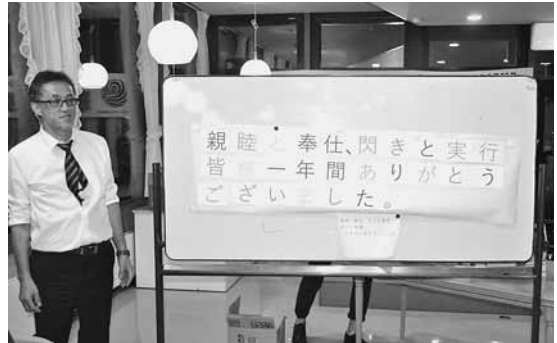 親睦と奉仕、閃きと実行
皆様一年間ありがとう
ございました。